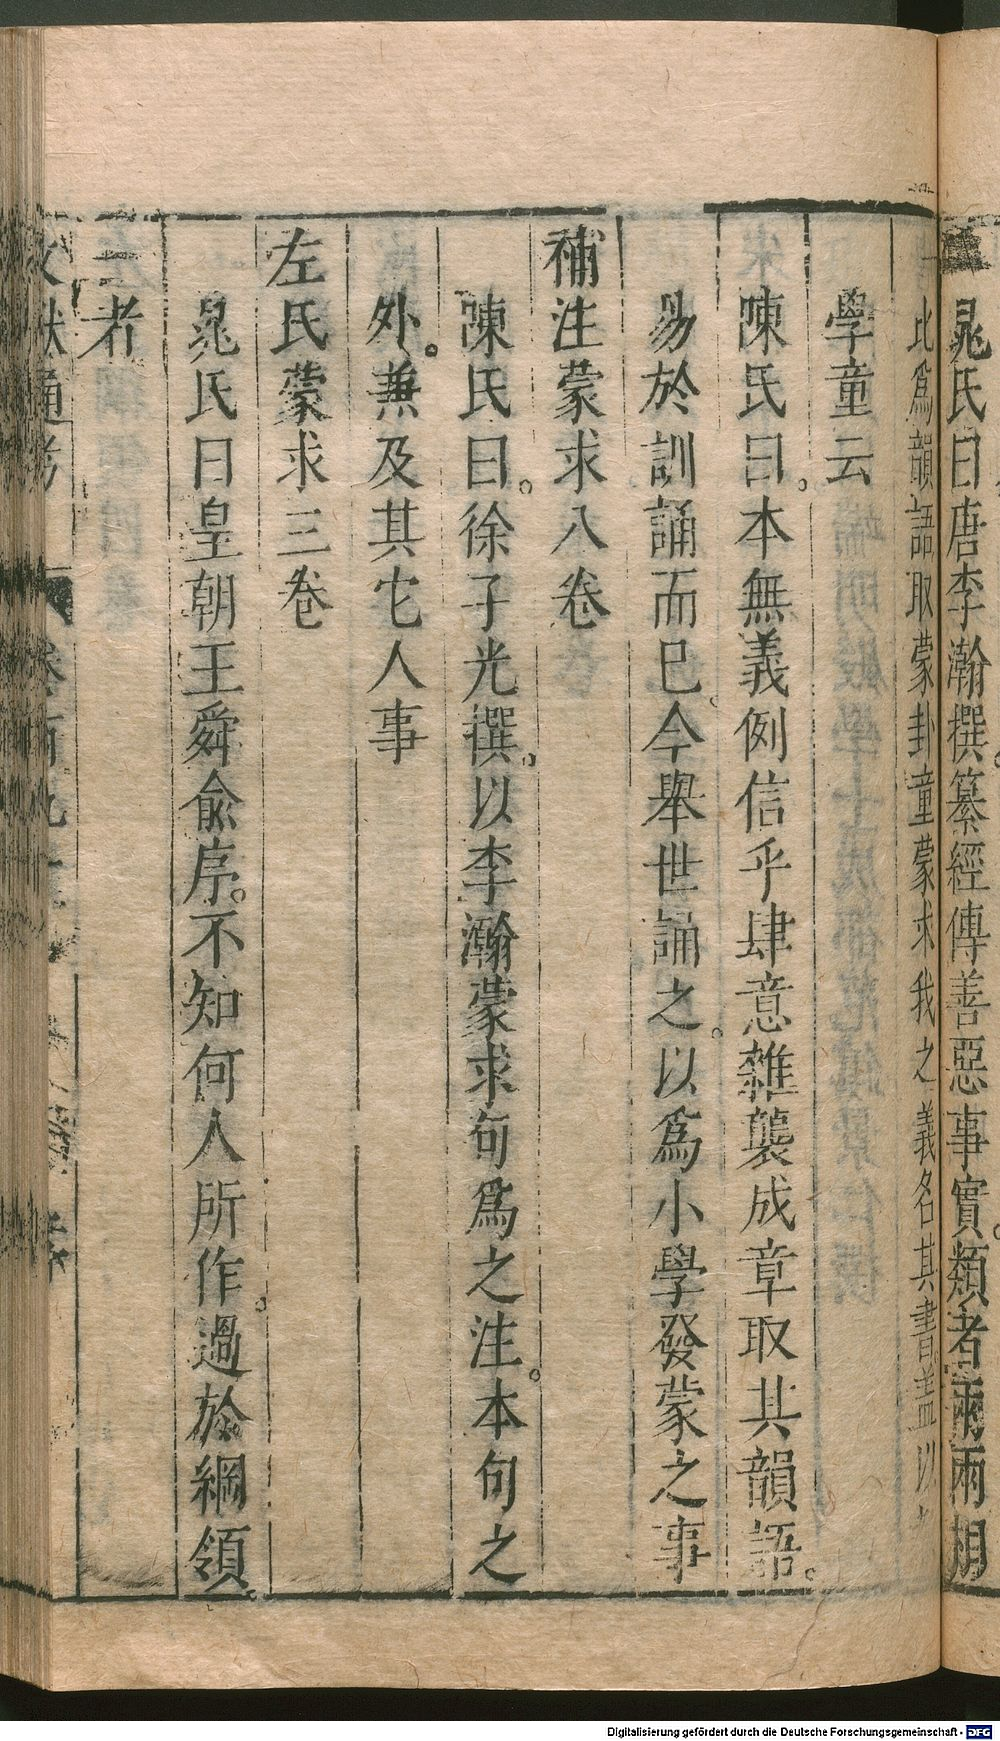 晁氏曰唐李瀚撰纂經傳善惡事實類者兩兩相
比爲韻語取蒙卦童蒙求我之義名其書蓋以
學童云
陳氏曰本無義例信乎肆意雜襲成章取其韻語
易於訓誦而已今舉世誦之以爲小學發蒙之事
補注蒙求八卷
陳氏曰徐子光撰以李瀚蒙求句爲之注本句之
外兼及其它人事
左氏蒙求三卷
晁氏曰皇朝王舜俞序不知何人所作過於綱領
三者
文獻通考
Digitalisierung gefördert durch die Deutsche Forschungsgemeinschaft - DFG